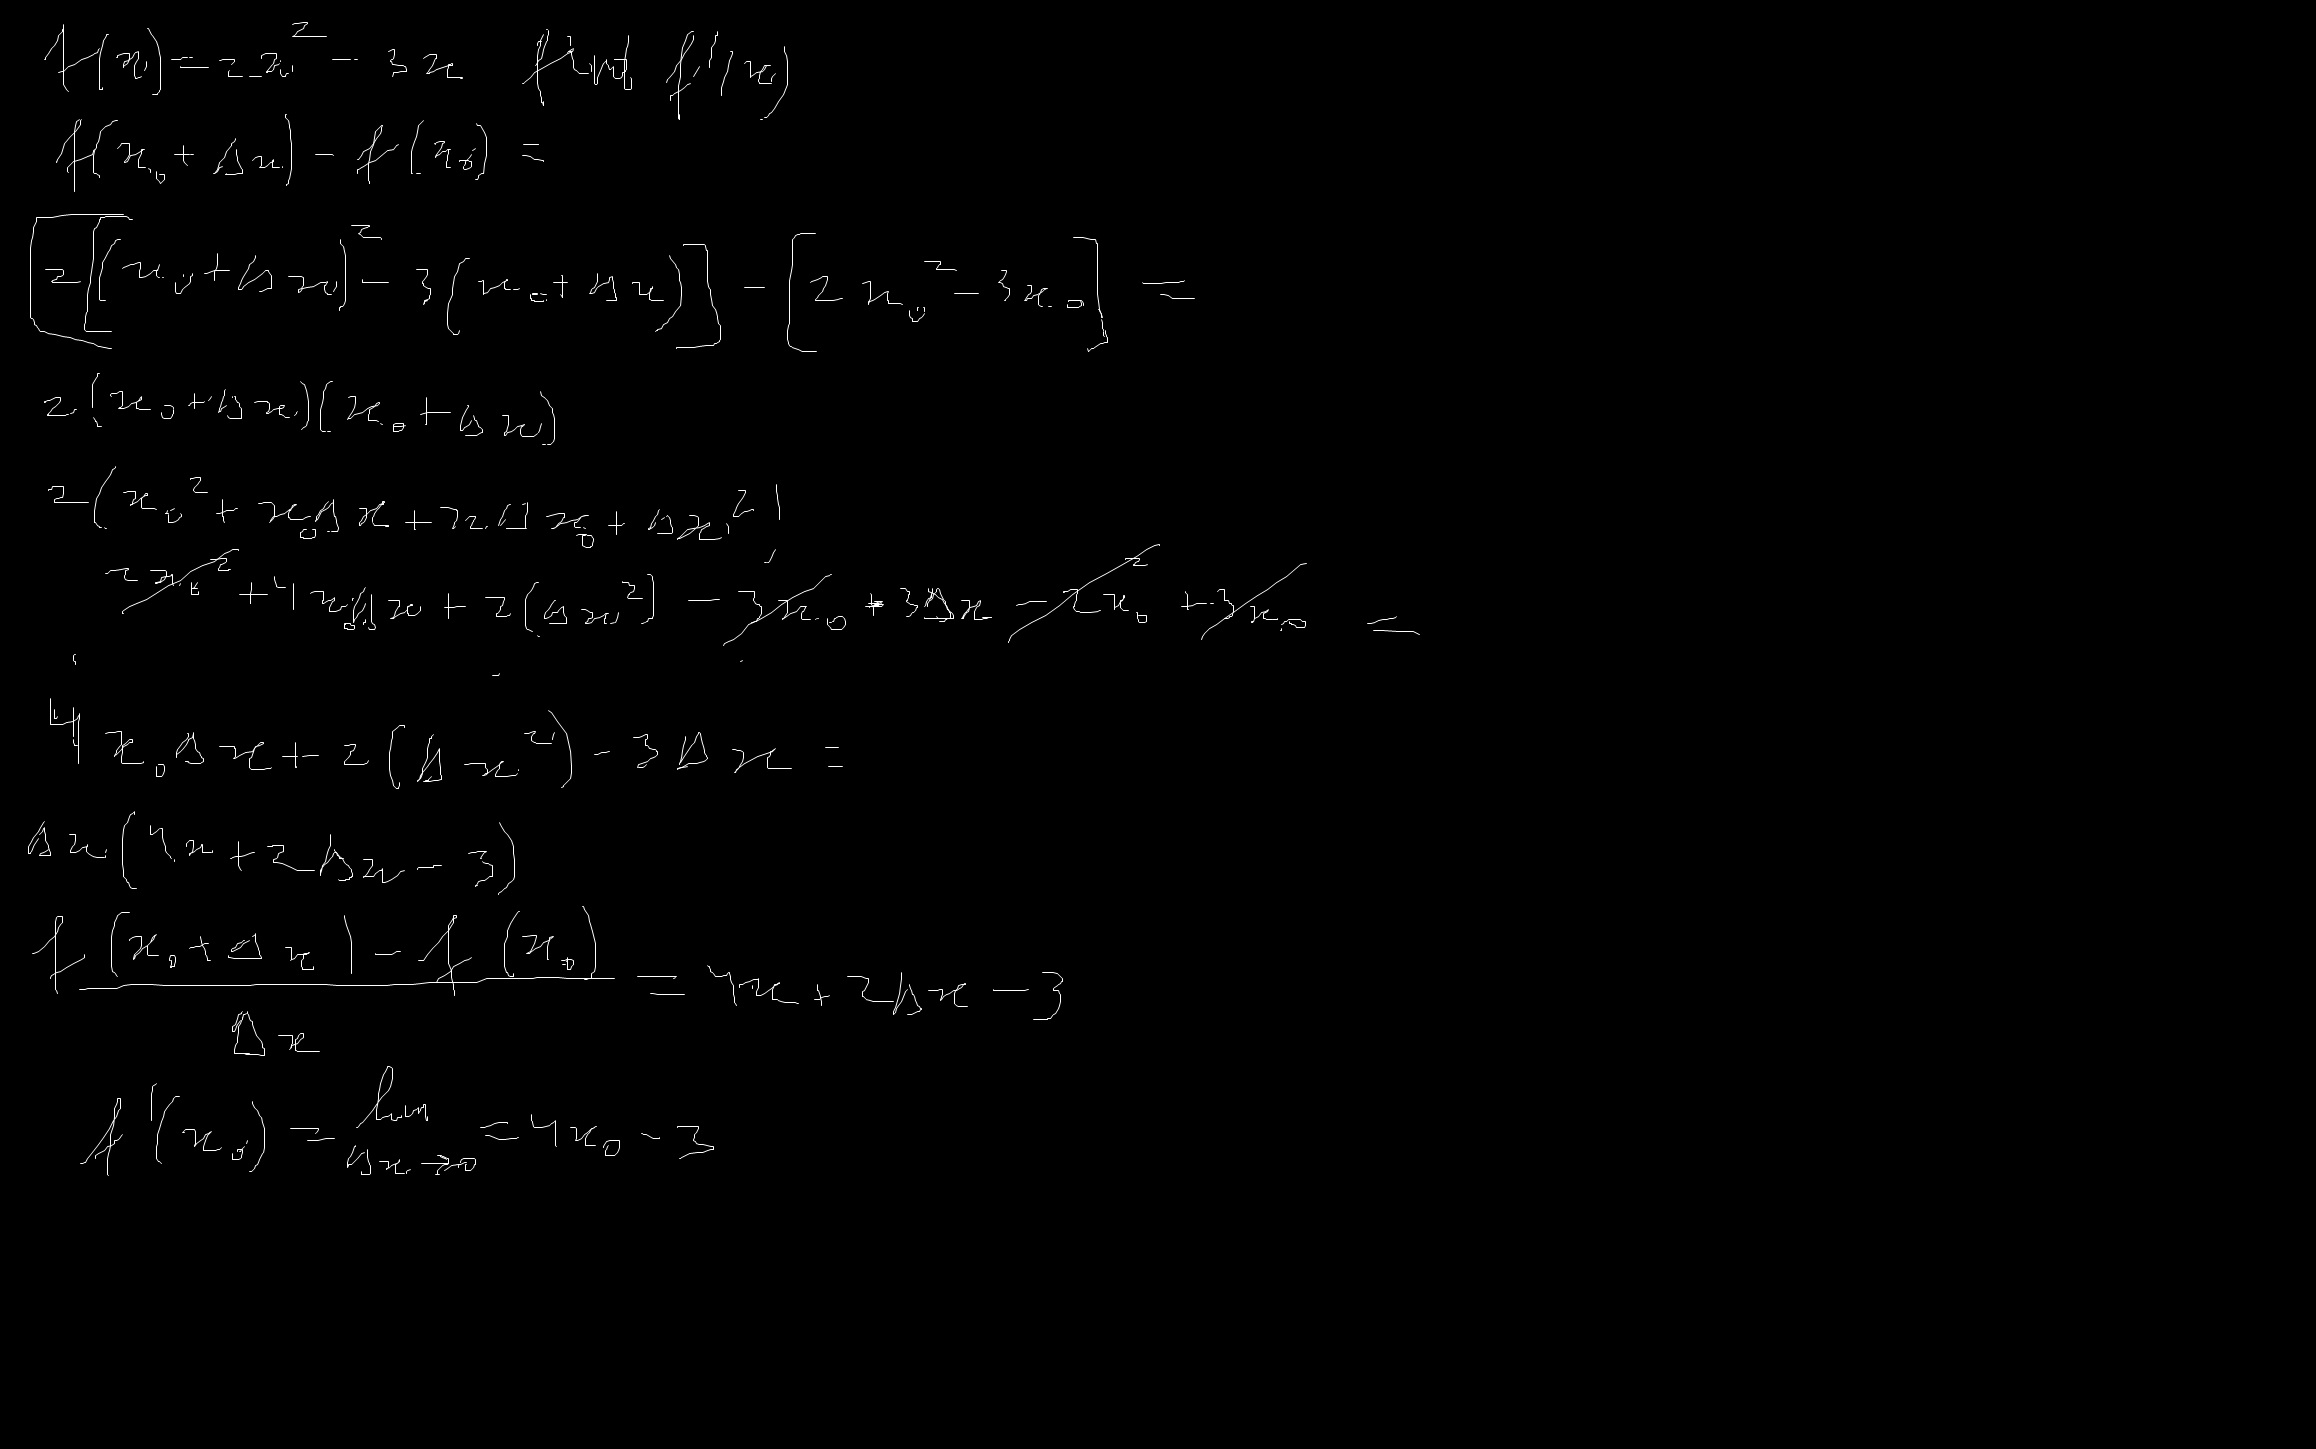 f(x) = 2x² - 3x find f'(x)
f(x₀ + Δx) - f(x₀) =
[2[(x₀ + Δx)² - 3(x₀ + Δx)] - [2x₀² - 3x₀] =
2(x₀ + Δx)(x₀ + Δx)
2(x₀² + x₀Δx + Δx₀ + Δx²)
2x₀² + 4x₀Δx + 2(Δx²) - 3x₀ + 3Δx - 2x₀² + 3x₀ =
4x₀Δx + 2(Δx²) - 3Δx =
Δx(4x + 2Δx - 3)
f(x₀ + Δx) - f(x₀) = 4x + 2Δx - 3
Δx
f'(x₀) = lim = 4x₀ - 3
Δx → 0